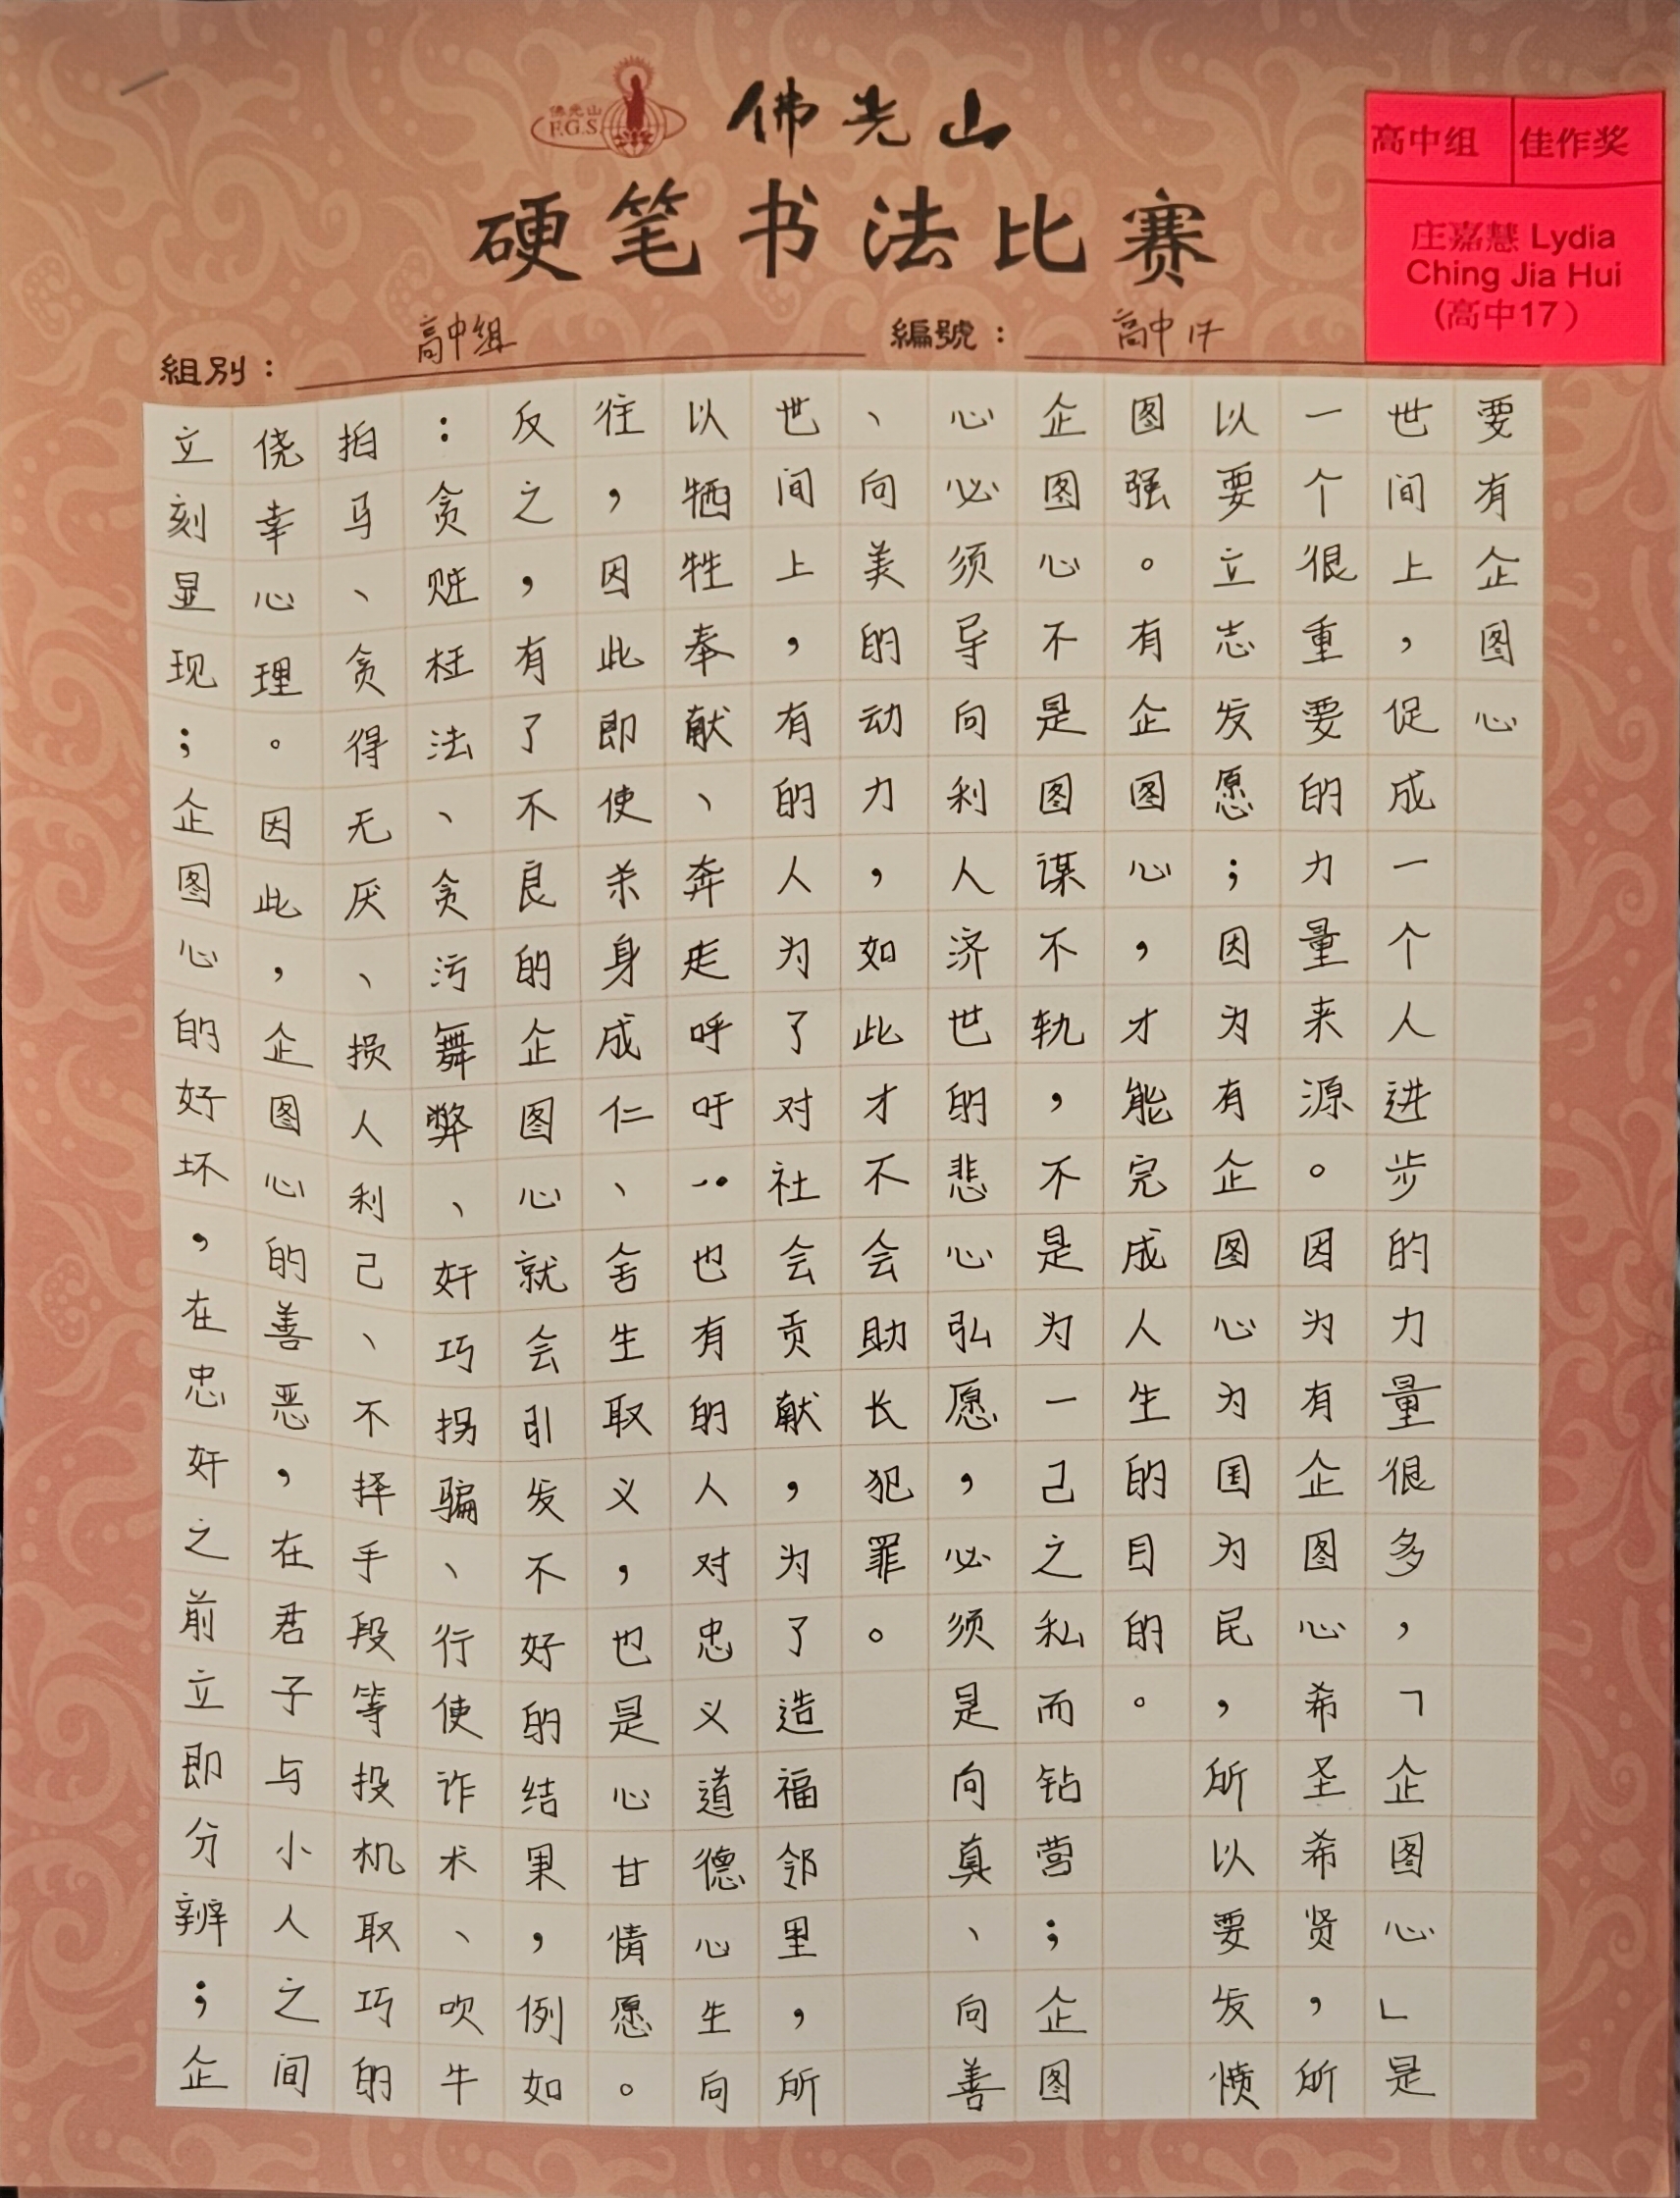 佛光山
F.G.S.
佛光山
硬笔书法比赛
高中组 佳作奖
庄嘉慧 Lydia
Ching Jia Hui
(高中17)
組別：高中组
編號：高中17
要有企图心
世间上，促成一个人进步的力量很多，「企图心」是
一个很重要的力量来源。因为有企图心，希圣希贤，所
以要立志发愿；因为有企图心为国为民，所以要发愤
图强。有企图心，才能完成人生的目的。
企图心不是图谋不轨，不是为一己之私而钻营；企图
心必须导向利人济世的悲心弘愿，必须是向真、向善
、向美的动力，如此才不会助长犯罪。
世间上，有的人为了对社会贡献，为了造福邻里，所
以牺牲奉献、奔走呼吁··也有的人，对忠义道德心生向
往，因此即使杀身成仁、舍生取义，也是心甘情愿。
反之，有了不良的企图心，就会引发不好的结果，例如
：贪赃枉法、贪污舞弊、奸巧拐骗、行使诈术、吹牛
拍马、贪得无厌、损人利己、不择手段等投机取巧的
侥幸心理。因此，企图心的善恶，在君子与小人之间
立刻显现；企图心的好坏，在忠奸之前立即分辨；企